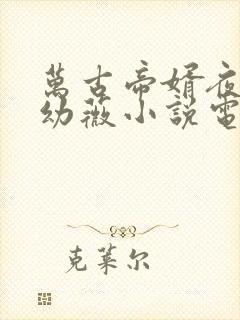 萬古帝婿夜
幼薇小說電
克萊尔